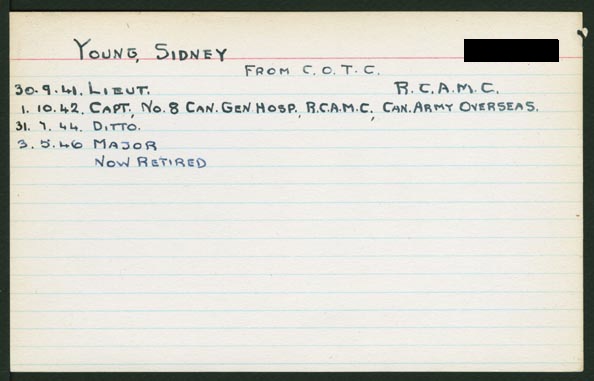 YOUNG, SIDNEY
FROM C.O.T.C.
30.9.41. LIEUT. R.C.A.M.C.
1.10.42. CAPT., NO.8 CAN. GEN HOSP., R.C.A.M.C., CAN. ARMY OVERSEAS.
31.7.44. DITTO.
3.5.46 MAJOR
NOW RETIRED